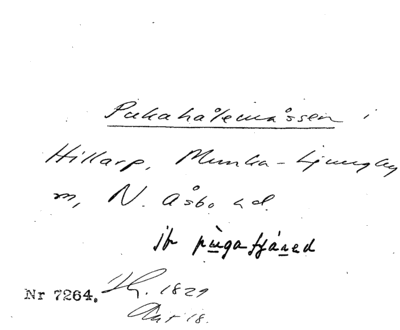 Pukahålemåssen i
Hillarp, Munka-Ljungby
sn, N. Åsbo hd.
jfr pùgatjǽned
Nr 7264. Hg. 1829
Akt 18.